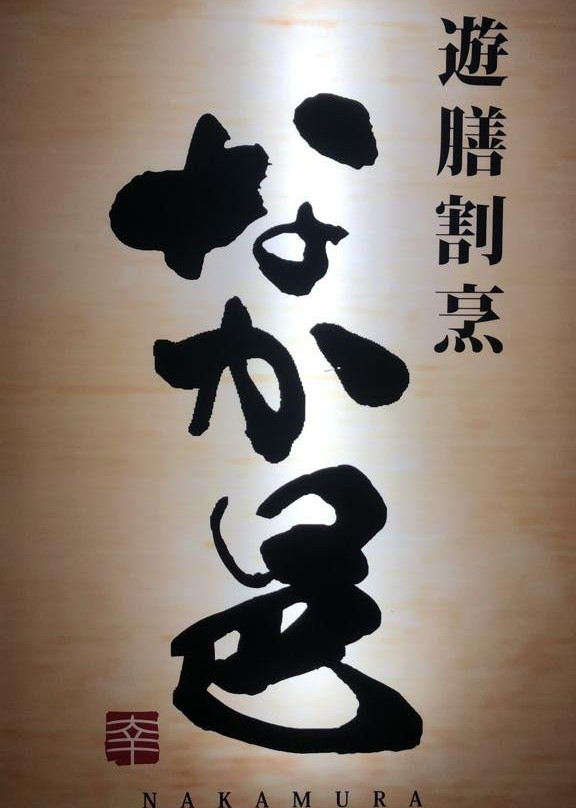 遊膳割烹
なか邑
幸
NAKAMURA